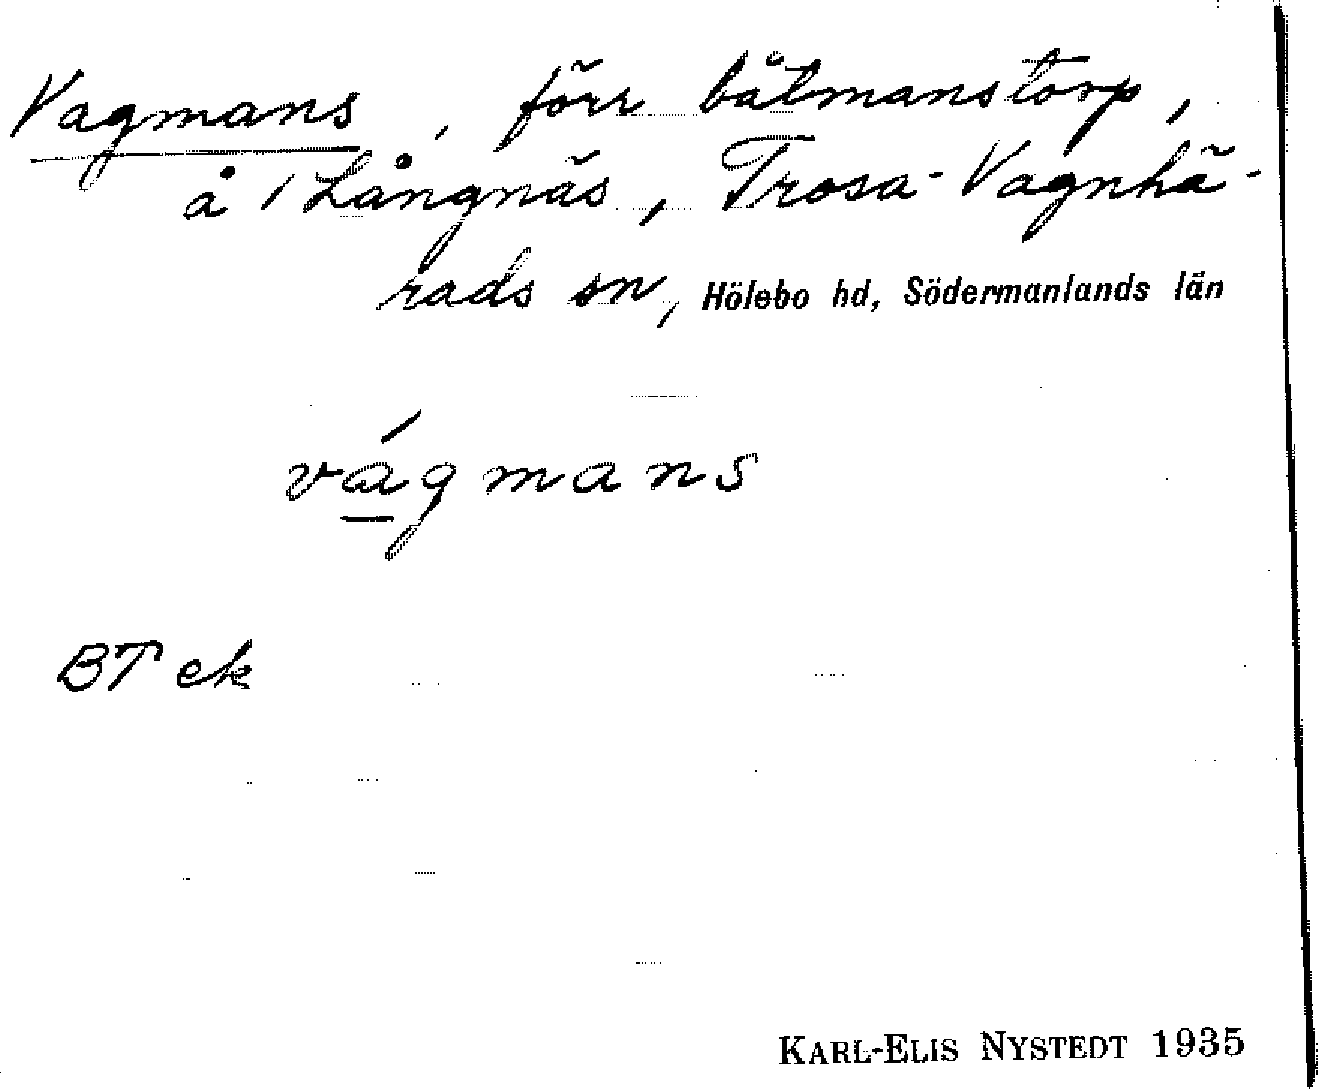 Vagmans, förr båtmanstorp,
å /Långnäs, Trosa-Vagnhä-
rads sn, Hölebo hd, Södermanlands län
vágmans
BT ek
KARL-ELIS NYSTEDT 1935